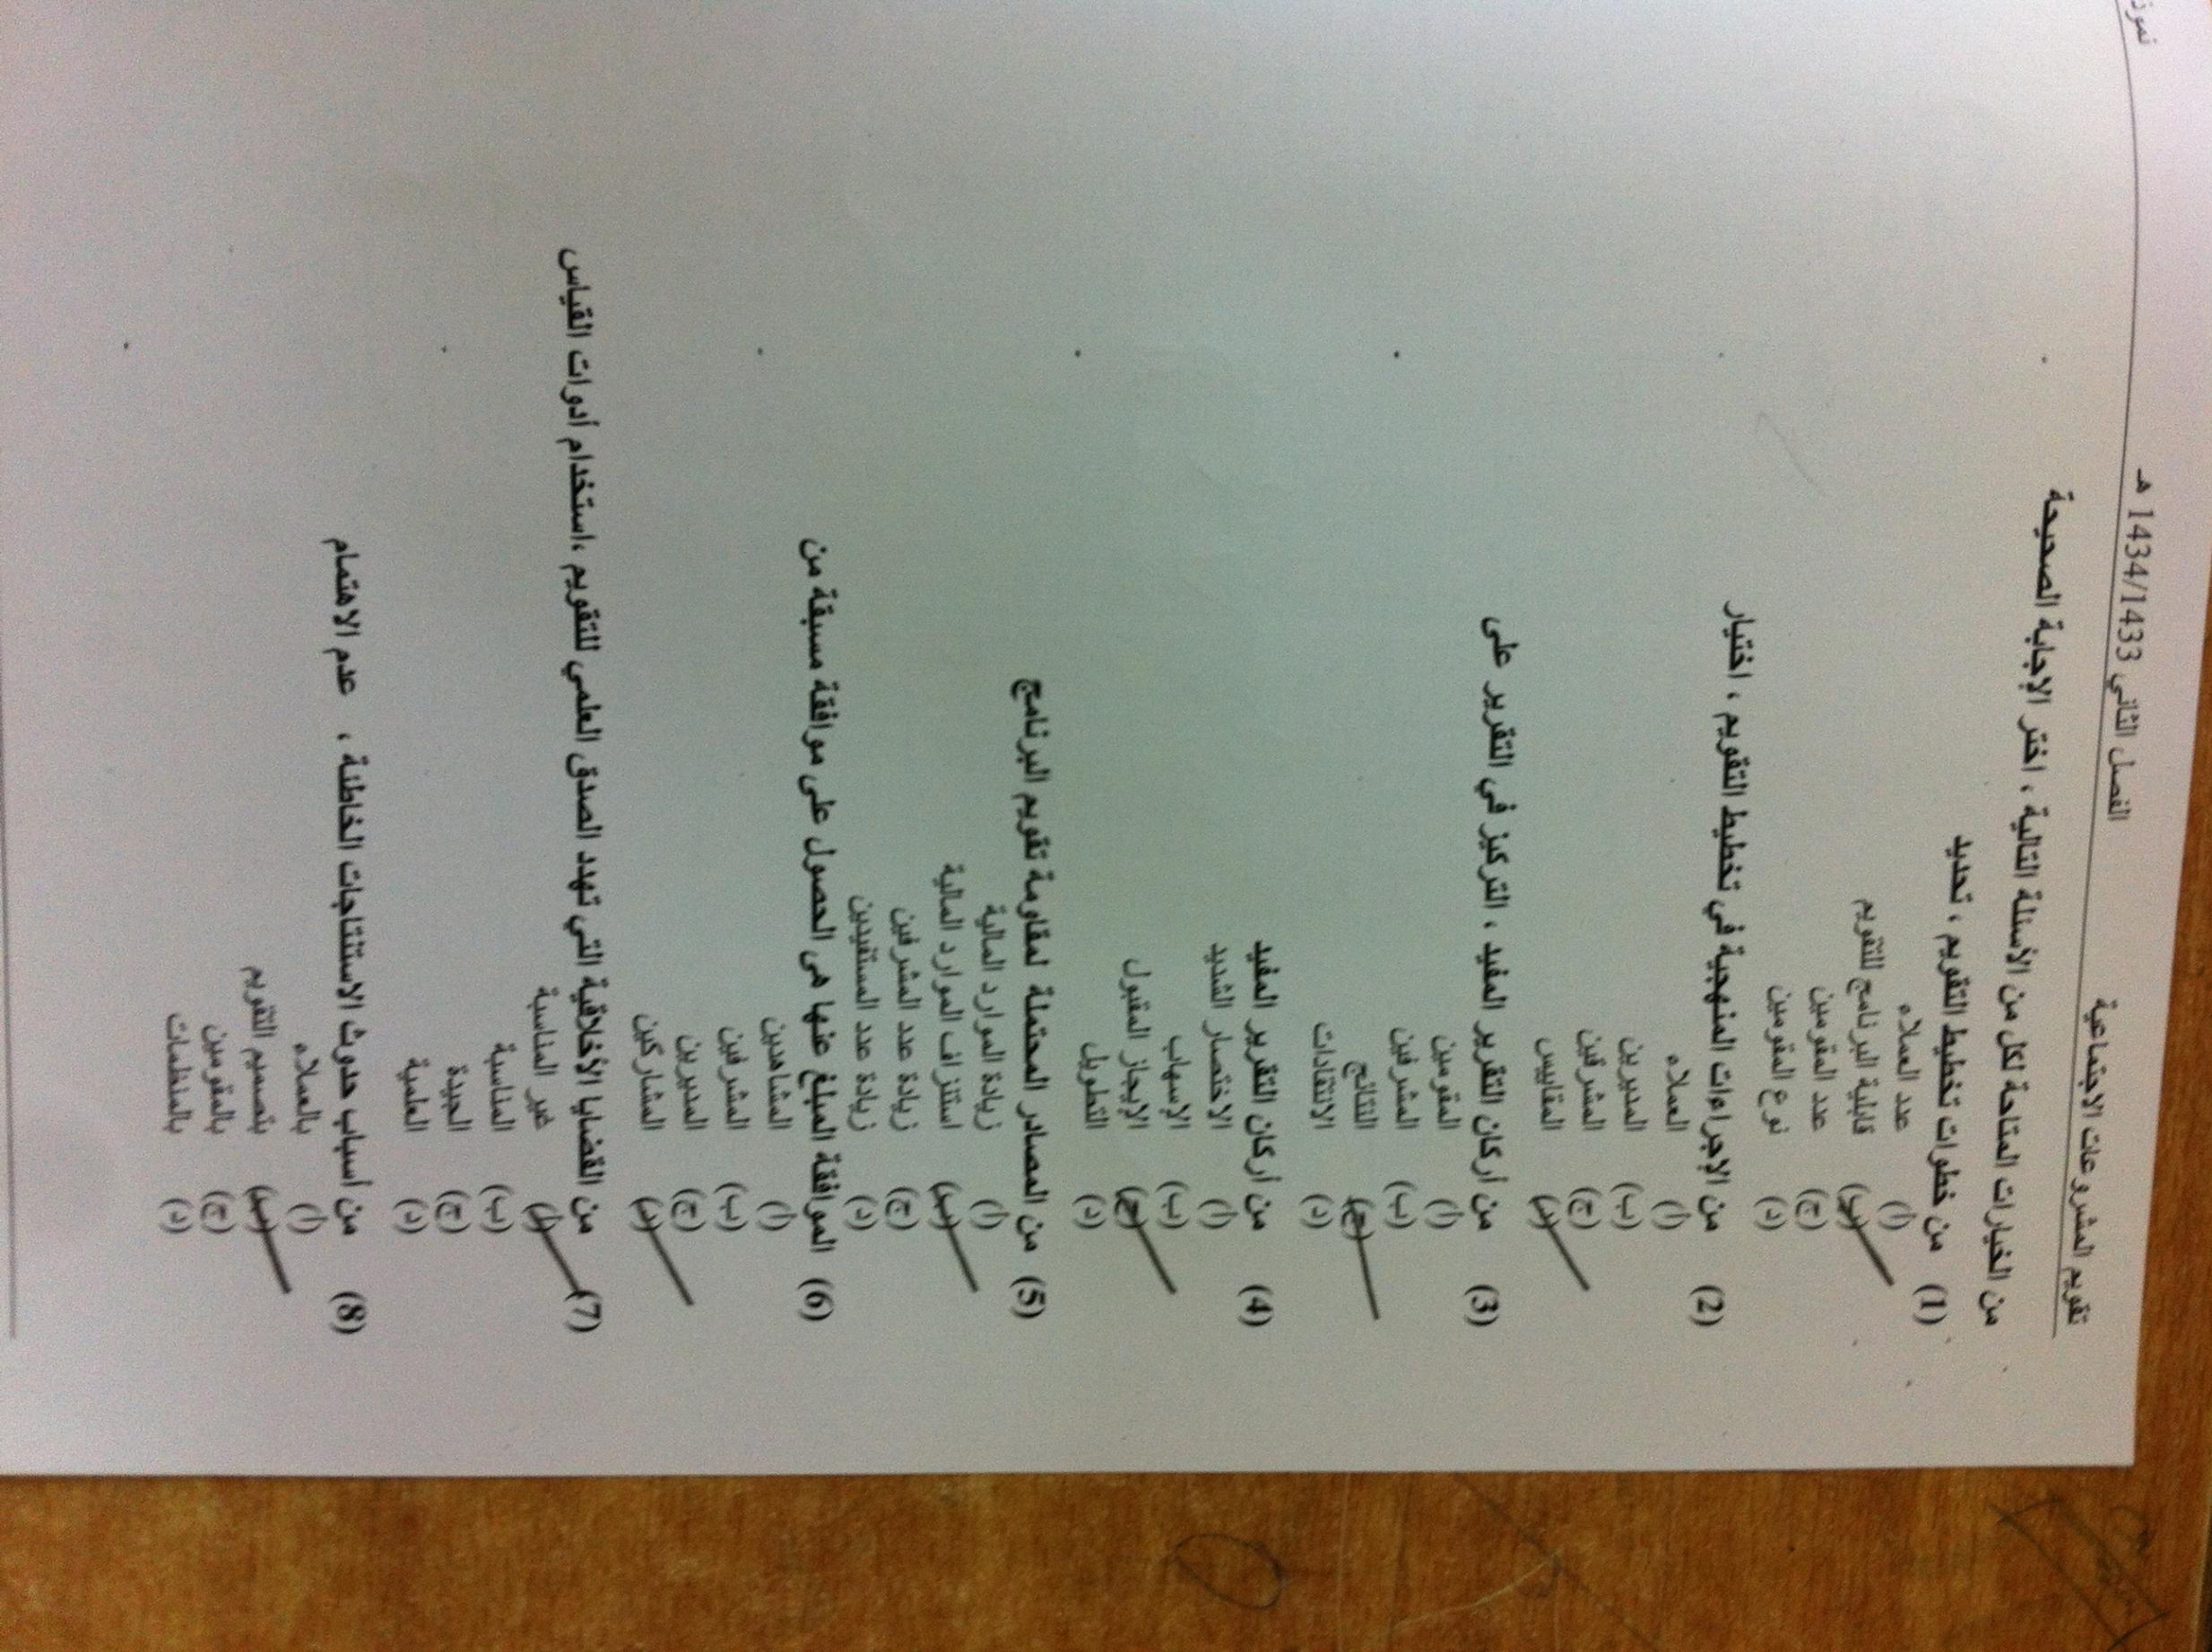 تقويم المشروعات الاجتماعية الفصل الثاني 1434/1433 هـ
من الخيارات المتاحة لكل من الأسئلة التالية ، اختر الإجابة الصحيحة
(1) من خطوات تخطيط التقويم ، تحديد
(أ) عدد العملاء
(ب) قابلية البرنامج للتقويم
(ج) عدد المقومين
(د) نوع المقومين
(2) من الإجراءات المنهجية في تخطيط التقويم ، اختيار
(أ) العملاء
(ب) المديرين
(ج) المشرفين
(د) المقاييس
(3) من أركان التقرير المفيد ، التركيز في التقرير على
(أ) المقومين
(ب) المشرفين
(ج) النتائج
(د) الانتقادات
(4) من أركان التقرير المفيد
(أ) الاختصار الشديد
(ب) الإسهاب
(ج) الإيجاز المقبول
(د) التطويل
(5) من المصادر المحتملة لمقاومة تقويم البرنامج
(أ) زيادة الموارد المالية
(ب) استنزاف الموارد المالية
(ج) زيادة عدد المشرفين
(د) زيادة عدد المستفيدين
(6) الموافقة المبلغ عنها هى الحصول على موافقة مسبقة من
(أ) المشاهدين
(ب) المشرفين
(ج) المديرين
(د) المشاركين
(7) من القضايا الأخلاقية التي تهدد الصدق العلمي للتقويم ،استخدام أدوات القياس
(أ) غير المناسبة
(ب) المناسبة
(ج) الجيدة
(د) العلمية
(8) من أسباب حدوث الاستنتاجات الخاطئة ، عدم الاهتمام
(أ) بالعملاء
(ب) بتصميم التقويم
(ج) بالمقومين
(د) بالمنظمات